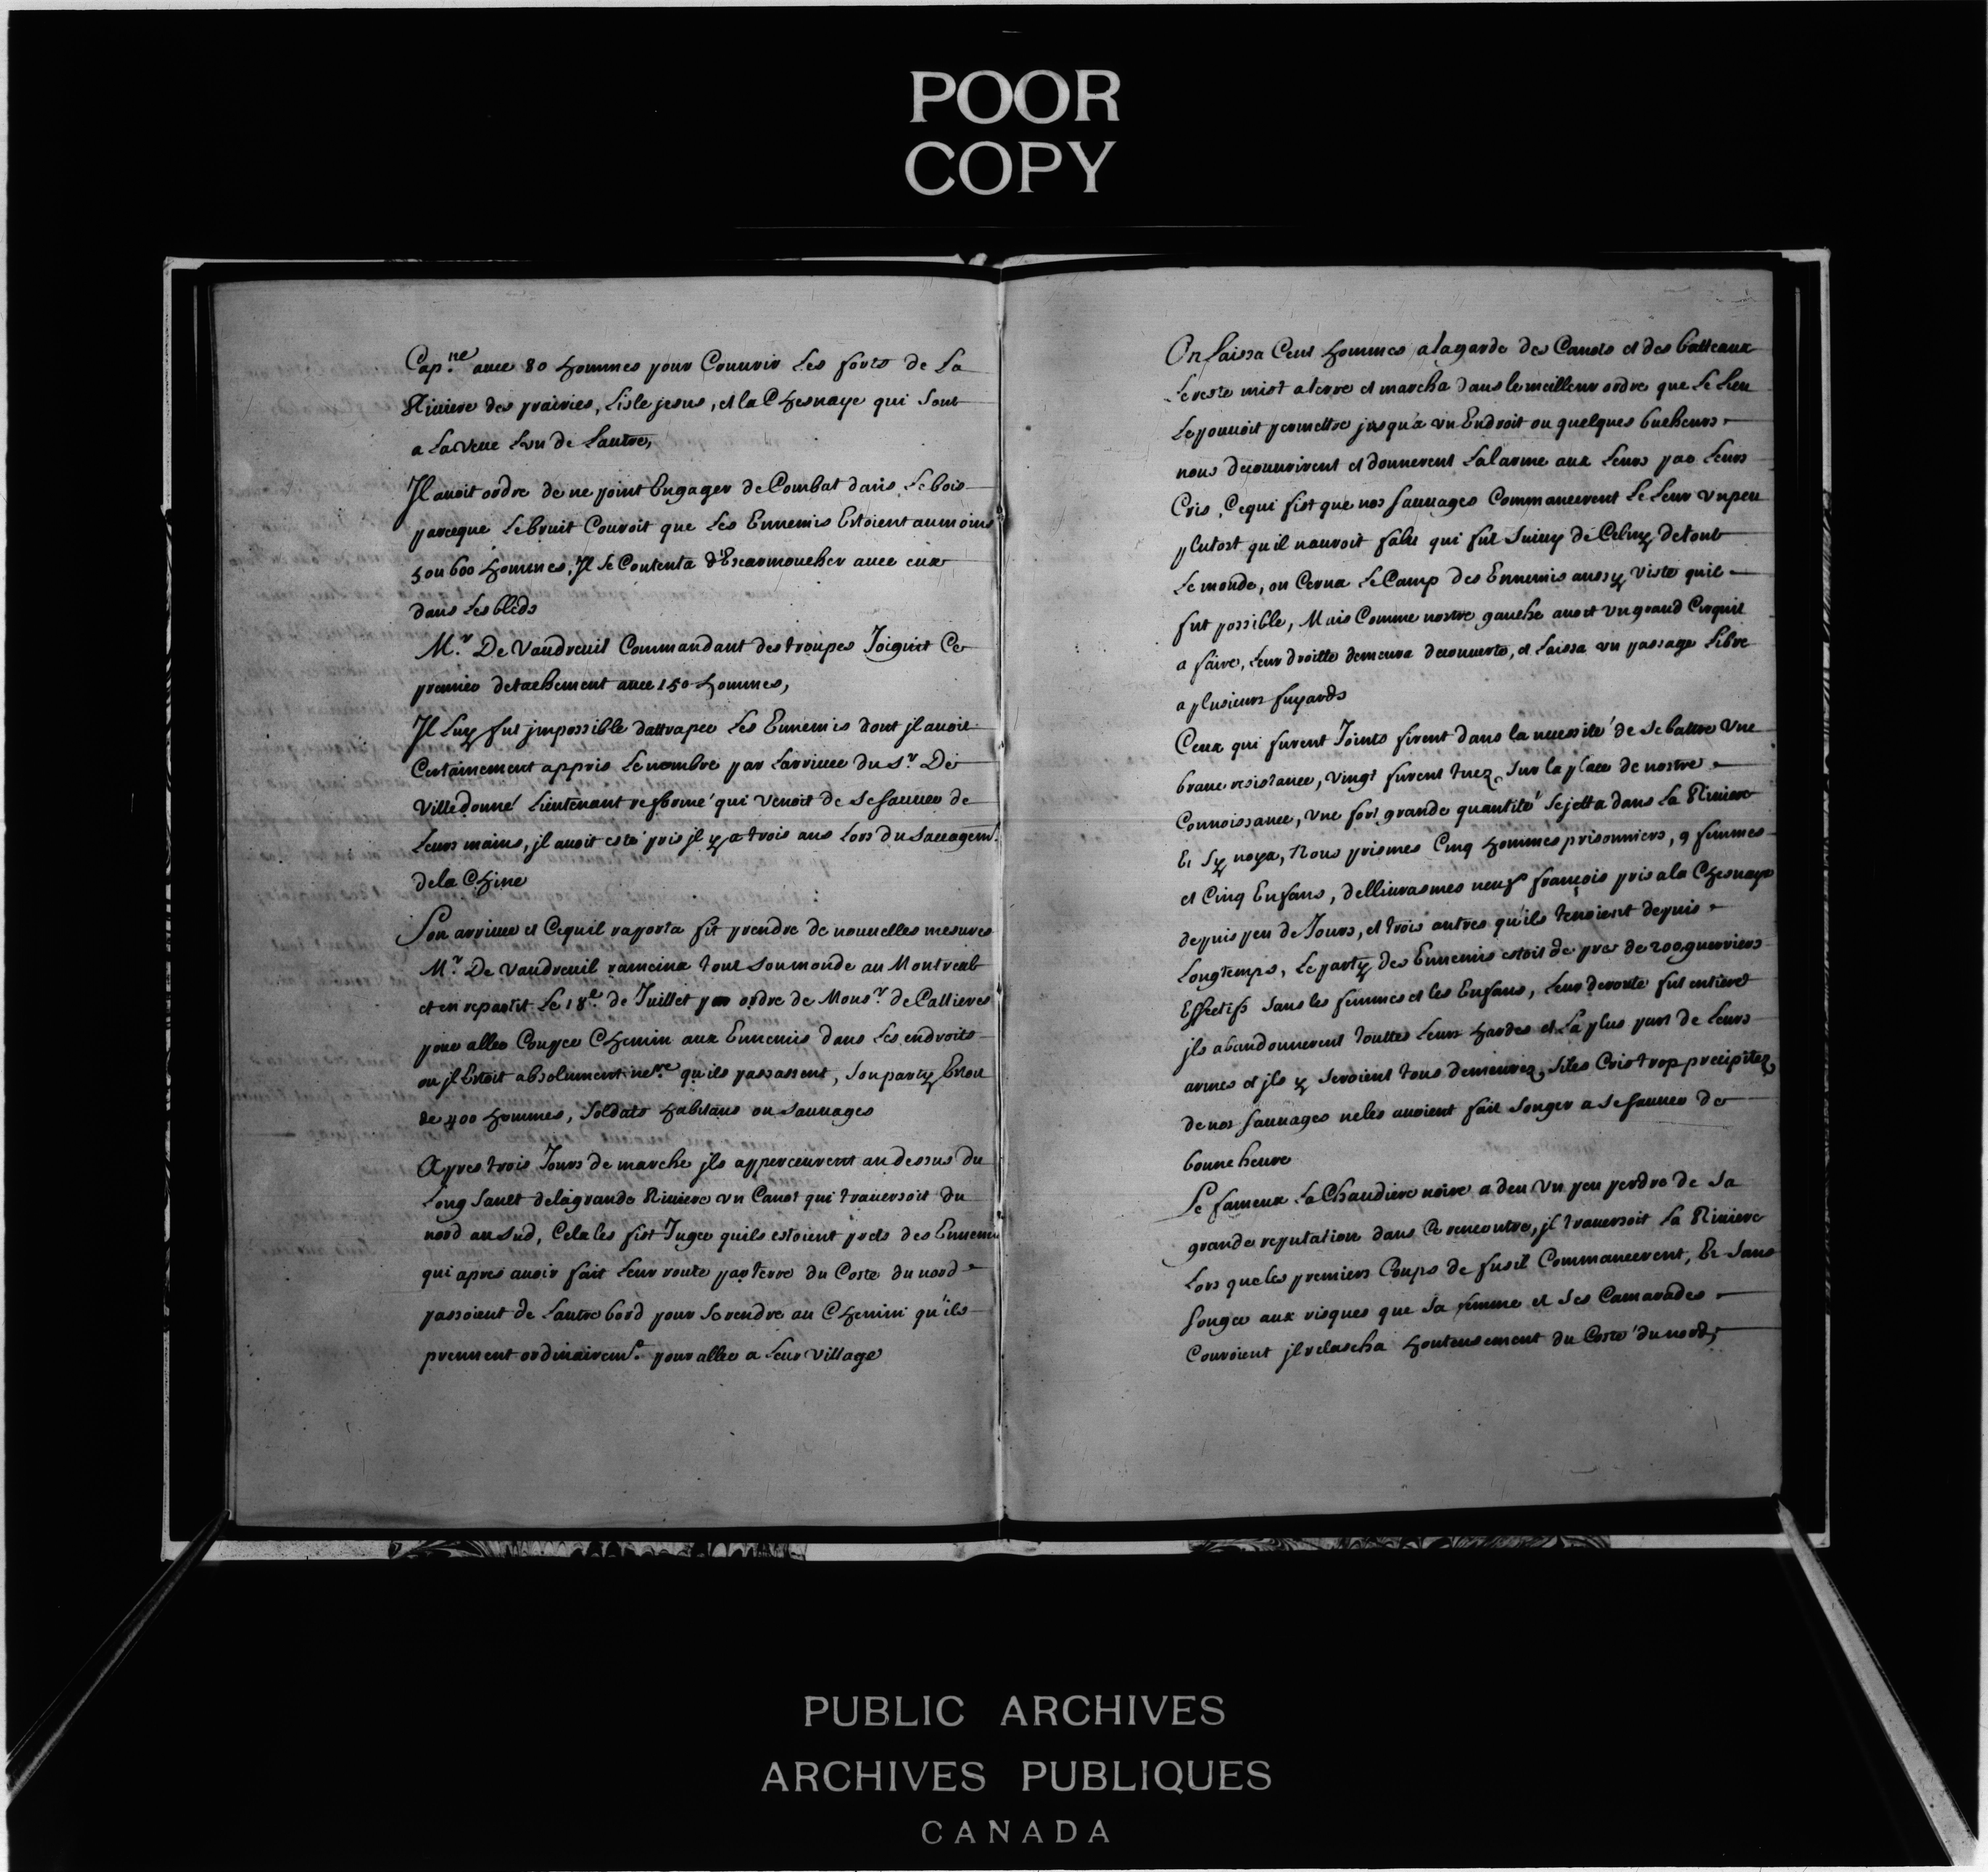 POOR
COPY
Cap.ne auec 80 hommes pour Couurir Les forts de La
Riuiere des prairies, Lisle jesus, et la Chesnaye qui sont
a La veue Lun de Lautre,
Il auoit ordre de ne point Engager de Combat dans Le bois
parceque Le bruit Couroit que Les Ennemis Estoient aumoins
5 ou 600 hommes, Il se Contenta d'Escarmoucher auec eux
dans Les bleds
M.r De Vaudreuil Commandant des troupes Joignit Ce
premier detachement auec 150 hommes,
Il Luy fut jmpossible dattraper Les Ennemis dont jl auoit
Certainement appris Le nombre par Larriuee du S.r De
Villedonné Lieutenant refformé qui venoit de se sauuer de
Leurs mains, jl auoit esté pris jl y a trois ans Lors du saccagem.t
de la Chine
Son arriuee et Cequil raporta fit prendre de nouuelles mesures
M.r De Vaudreuil ramena tout son monde au Montreal
et en repartit Le 18.e de Juillet par ordre de Mons.r de Callieres
pour aller Couper Chemin aux Ennemis dans Les endroits
ou jl Estoit absolument ne.re qu'ils passassent, son party Estoit
de 400 hommes, soldats habitans ou sauuages
Apres trois Jours de marche jls apperceurent au dessus du
Long Sault de la grande Riuiere vn Canot qui trauersoit du
nord au sud, Cela les fist Juger quils estoient prets des Ennemis
qui apres auoir fait Leur route par terre du Coste du nord
passoient de Lautre bord pour se rendre au Chemin qu'ils
prennent ordinairem.t pour aller a Leur village
On Laissa Cent hommes a la garde des Canots et des batteaux
Le reste mist a terre et marcha dans le meilleur ordre que Le Lieu
Le pouuoit permettre jusqu'a vn Endroit ou quelques bucheurs
nous decouurirent et donnerent Lalarme aux Leurs par Leurs
Cris, Cequi fist que nos sauuages Commancerent Le Leur vn peu
plutost qu'il nauroit falu qui fut suiuy de Celuy de tout
Le monde, on Cerna Le Camp des Ennemis aussy viste quil
fut possible, Mais Comme nostre gauche auoit vn grand Circuit
a faire, Leur droitte demeura decouuerte, et Laissa vn passage Libre
a plusieurs fuyards
Ceux qui furent Joints firent dans la necessité de se battre vne
braue resistance, vingt furent tuez sur la place de nostre
Connoissance, vne fort grande quantité se jetta dans La Riuiere
Et sy noya, Nous prismes Cinq hommes prisonniers, 9 femmes
et Cinq Enfans, delliurasmes neuf françois pris a la Chesnaye
depuis peu de Jours, et trois autres qu'ils tenoient depuis
Longtemps, Le party des Ennemis estoit de pres de 200 guerriers
Effectifs sans les femmes et les Enfans, Leur deroute fut entiere
jls abandonnerent touttes Leurs hardes et La plus part de Leurs
armes et jls y seroient tous demeurez, si les Cris trop precipitez
de nos sauuages ne les auoient fait songer a se sauuer de
bonne heure
Le fameux La Chaudiere noire a deu vn peu perdre de sa
grande reputation dans Ce rencontre, jl trauersoit La Riuiere
Lors que les premiers Coups de fusil Commancerent, Et sans
songer aux risques que sa femme et ses Camarades
Couroient jl relascha honteusement du Costé du nord,
PUBLIC ARCHIVES
ARCHIVES PUBLIQUES
CANADA